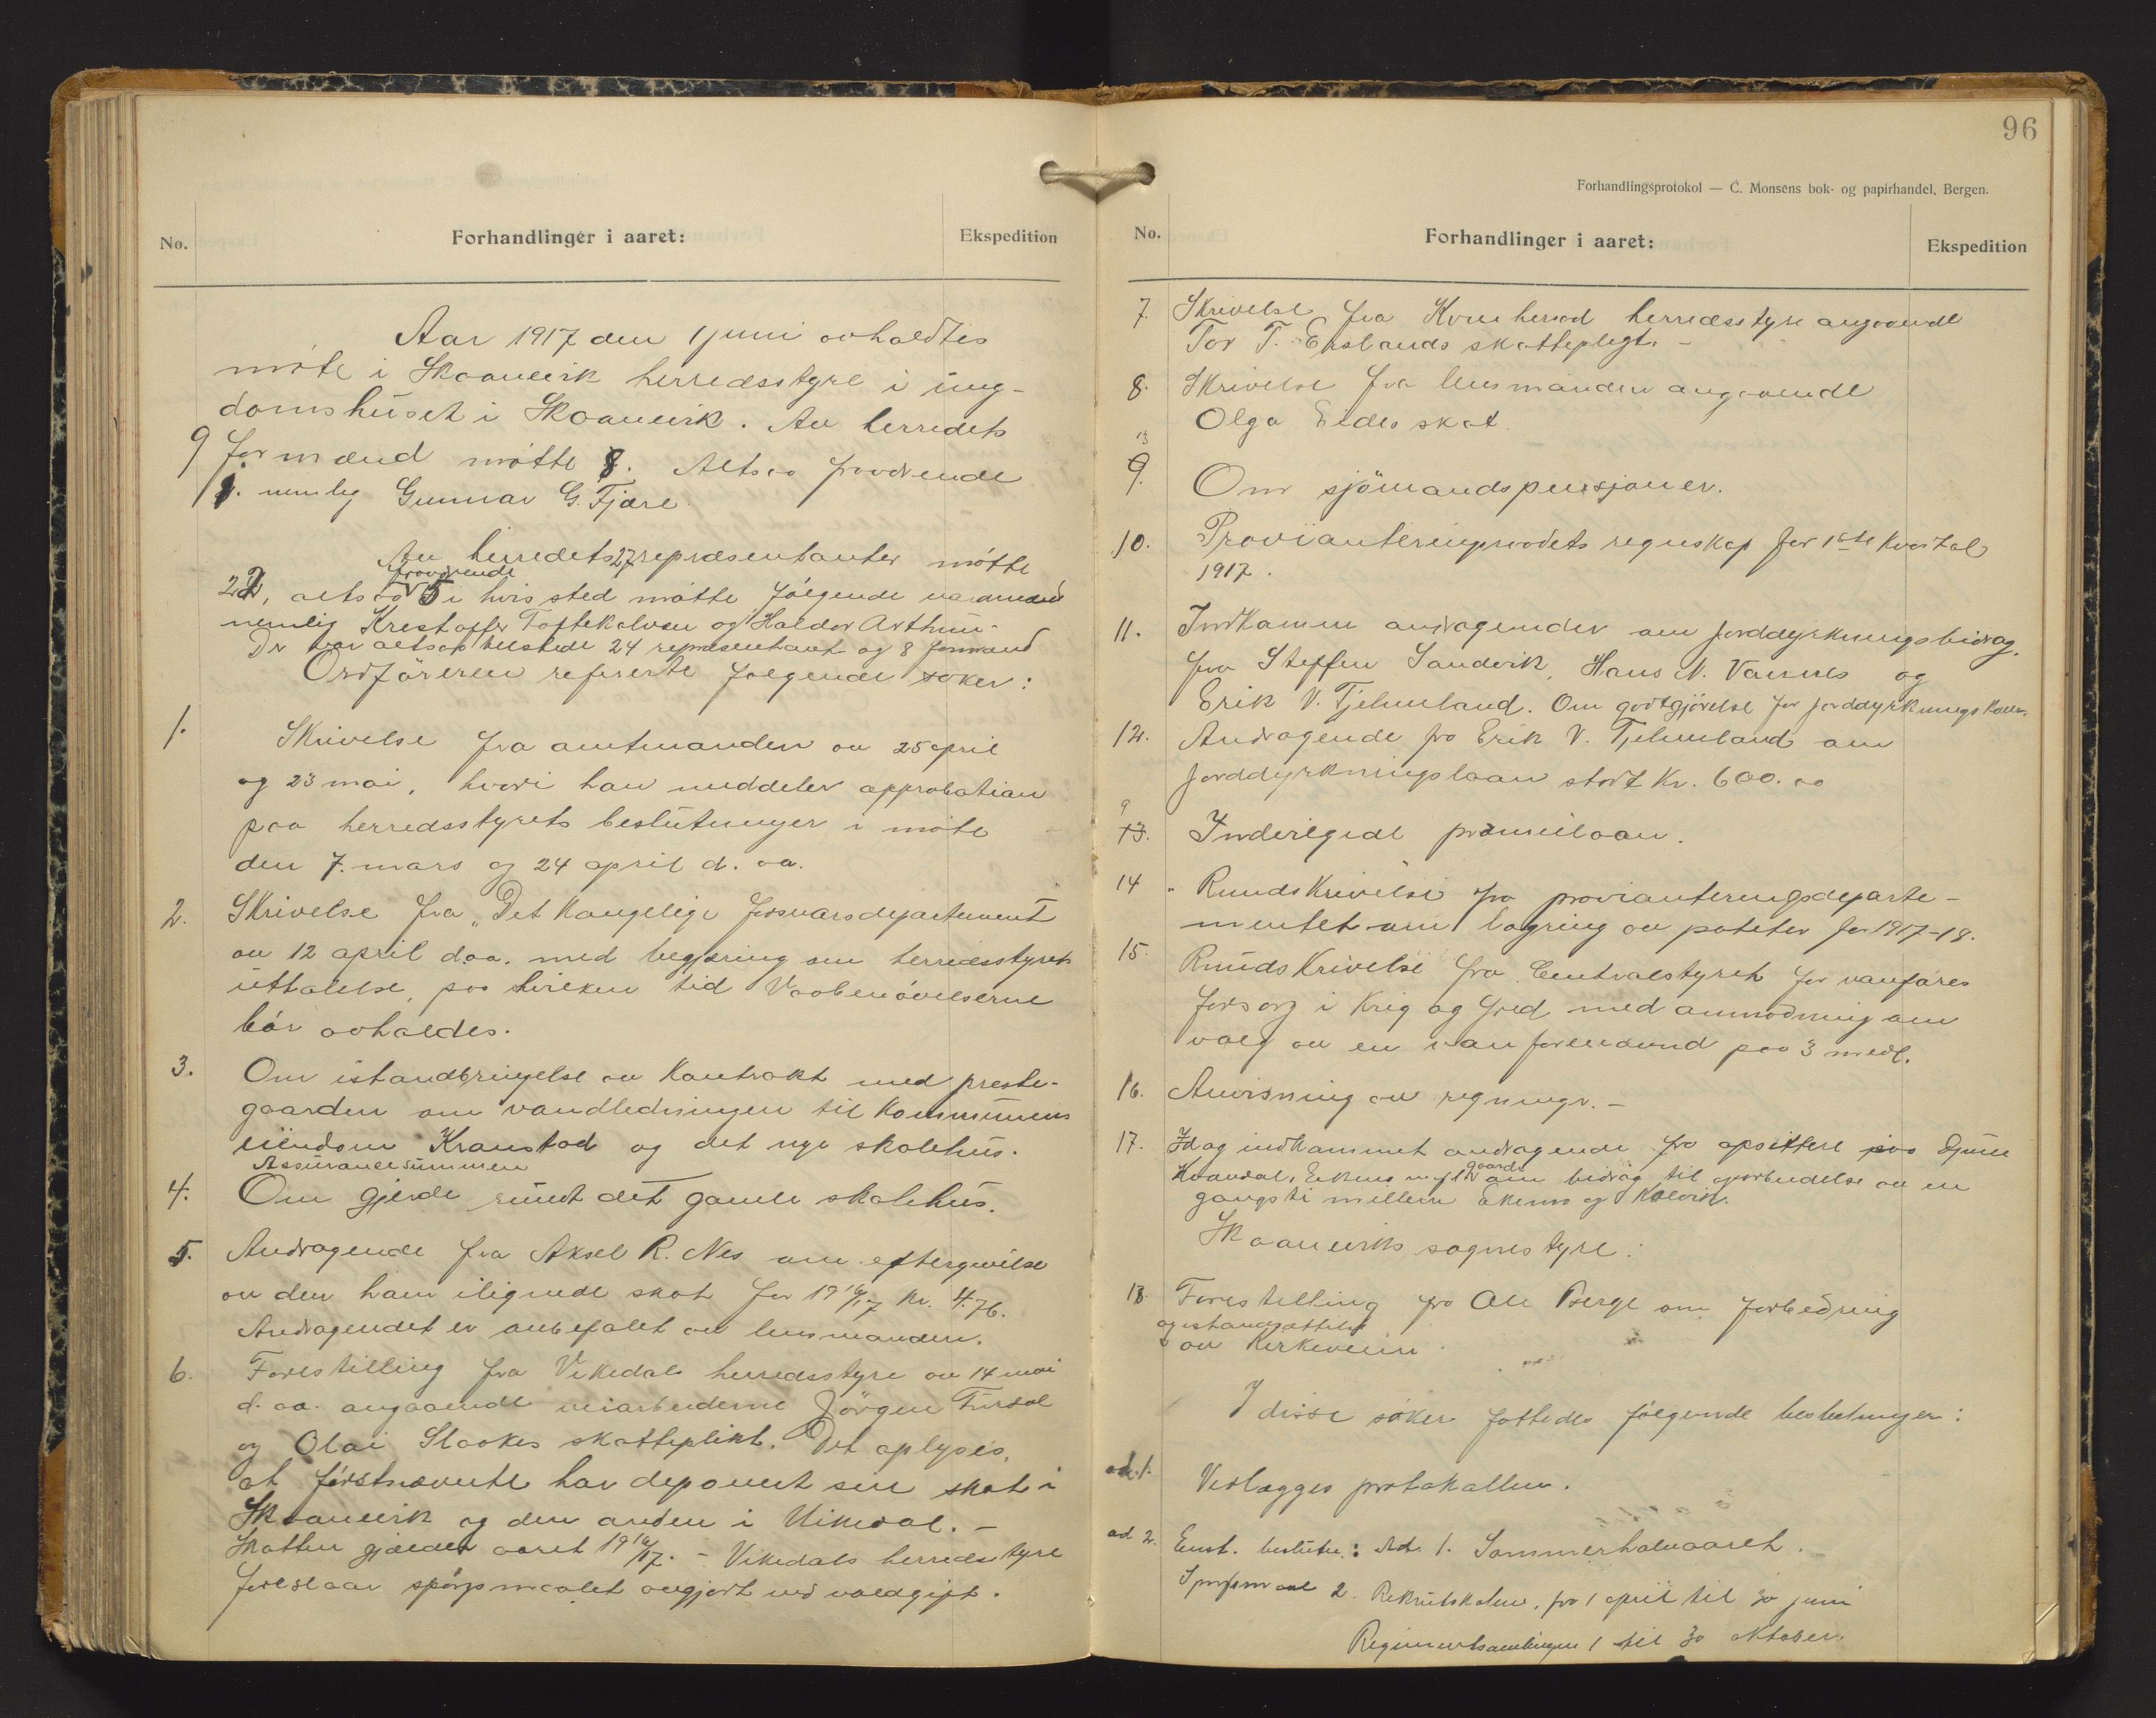 No.
Forhandlinger i aaret:
Ekspedition
Aar 1917 den 1 juni avholdtes
møte i Skaanevik herredsstyre i ung-
domshuset i Skaanevik. Av herredets
9 formænd møtte 8. Altsaa fraværende
1. nemlig Gunnar G. Fjære.
Av herredets 27 repræsentanter møtte
22, altsaa fraværende 5 i hvis sted møtte følgende varamænd
nemlig Krestoffer Toftekalven og Haldor Arthun.
Der var altsaa tilstede 24 representant og 8 formænd
Ordføreren refererte følgende saker:
1. Skrivelse fra amtmanden av 25 april
og 23 mai, hvori han meddeler approbation
paa herredsstyrets beslutninger i møte
den 7. mars og 24 april d. aa.
2. Skrivelse fra „Det kongelige forsvarsdepartement
av 12 april d.aa. med begjæring om herredsstyrets
uttalelse, paa hvilken tid Vaabenøvelserne
bør avholdes.
3. Om istandbringelse av kontrakt med preste-
gaarden om vandledningen til kommunens
eiendom Kranstad og det nye skolehus.
Assurancesummen
4. Om gjerde rundt det gamle skolehus.
5. Andragende fra Aksel R. Nes om eftergivelse
av den ham ilignede skat for 1916/17 kr. 4.76.
Andragendet er anbefalet av lensmanden.
6. Forestilling fra Vikedals herredsstyre av 14 mai
d. aa. angaaende veiarbeiderne Jörgen
og Olai skatteplikt. Det oplyses,
at førstnævnte har deponert sin skat i
Skaanevik og den anden i Vikedal. -
Skatten gjælder aaret 1916/17. - Vikedals herredsstyre
foreslaar spørgsmaalet avgjort ved voldgift.
96
Forhandlingsprotokol — C. Monsens bok- og papirhandel, Bergen.
No.
Forhandlinger i aaret:
Ekspedition
7. Skrivelse fra herredsstyre angaaende
Tor T. Eikslands skattepligt. -
8. Skrivelse fra lensmanden angaaende
Olga Eides skat.
13
9. Om sjömandspensjoner.
10. Provianteringsraadets regnskap for 1ste kvartal
1917.
11. Indkomne andragender om jorddyrkningsbidrag.
fra Steffen Sandvik, Hans N. Vannes og
Erik V. Tjelmeland. Om godtgjørelse for jorddyrkningskom.
12. Andragende fra Erik V. Tjelmeland om
jorddyrkningslaan stort kr. 600.00
9
13. Inderlegede præmielaan.
14. Rundskrivelse fra provianteringsdeparte-
mentet om lagring av poteter for 1917-18.
15. Rundskrivelse fra Centralstyret for vanføres
forsorg i krig og fred med anmodning om
valg av en vanførenevnd paa 3 medl.
16. Anvisning av regninger. -
17. Idag indkommet andragende fra opsittere paa
gaarde om bidrag til oparbeidelse av en
gangsti mellem og Kalvik.
Skaaneviks sognestyre:
18. Forestilling fra Ole Berge om forbedring
og istandsættelse
av kirkeveien.
I disse saker fattedes følgende beslutninger:
ad. 1. Vedlægges protokollen.
ad 2. Enst. beslutn.: Ad. 1. Sommerhalvaaret.
Spørsmaal 2. Rekrutskolen, fra 1 april til 30 juni
Regimentsamlingen 1 til 30 oktober.